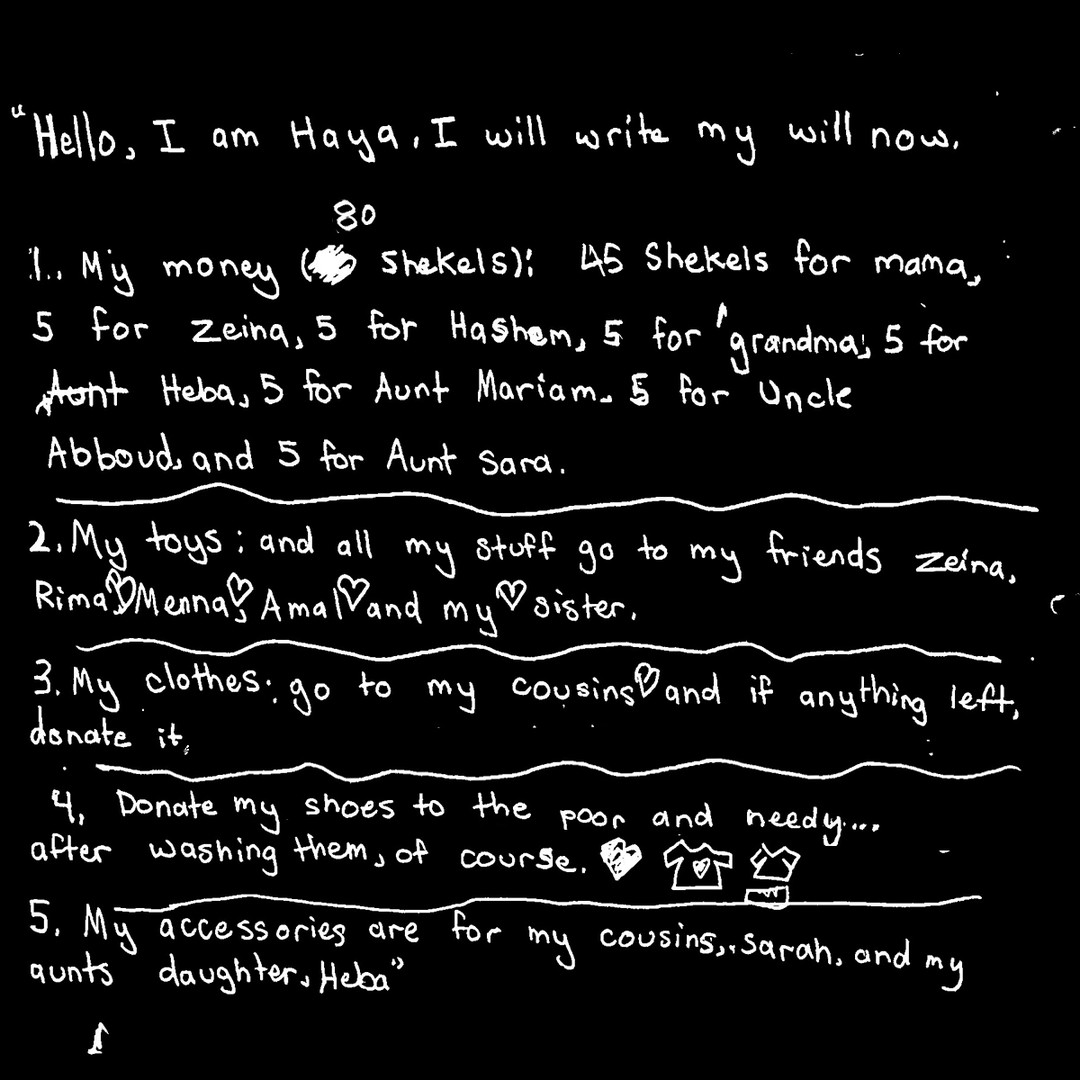 "Hello, I am Haya, I will write my will now.
80
1. My money ( shekels): 45 Shekels for mama,
5 for Zeina, 5 for Hashem, 5 for grandma, 5 for
Aunt Heba, 5 for Aunt Mariam. 5 for Uncle
Abboud, and 5 for Aunt Sara.
2. My toys: and all my stuff go to my friends Zeina,
Rima♡, Menna♡, Amal♡ and my♡ sister.
3. My clothes: go to my cousins♡ and if anything left,
donate it.
4. Donate my shoes to the poor and needy....
after washing them, of course.
5. My accessories are for my cousins, Sarah, and my
aunts daughter, Heba"